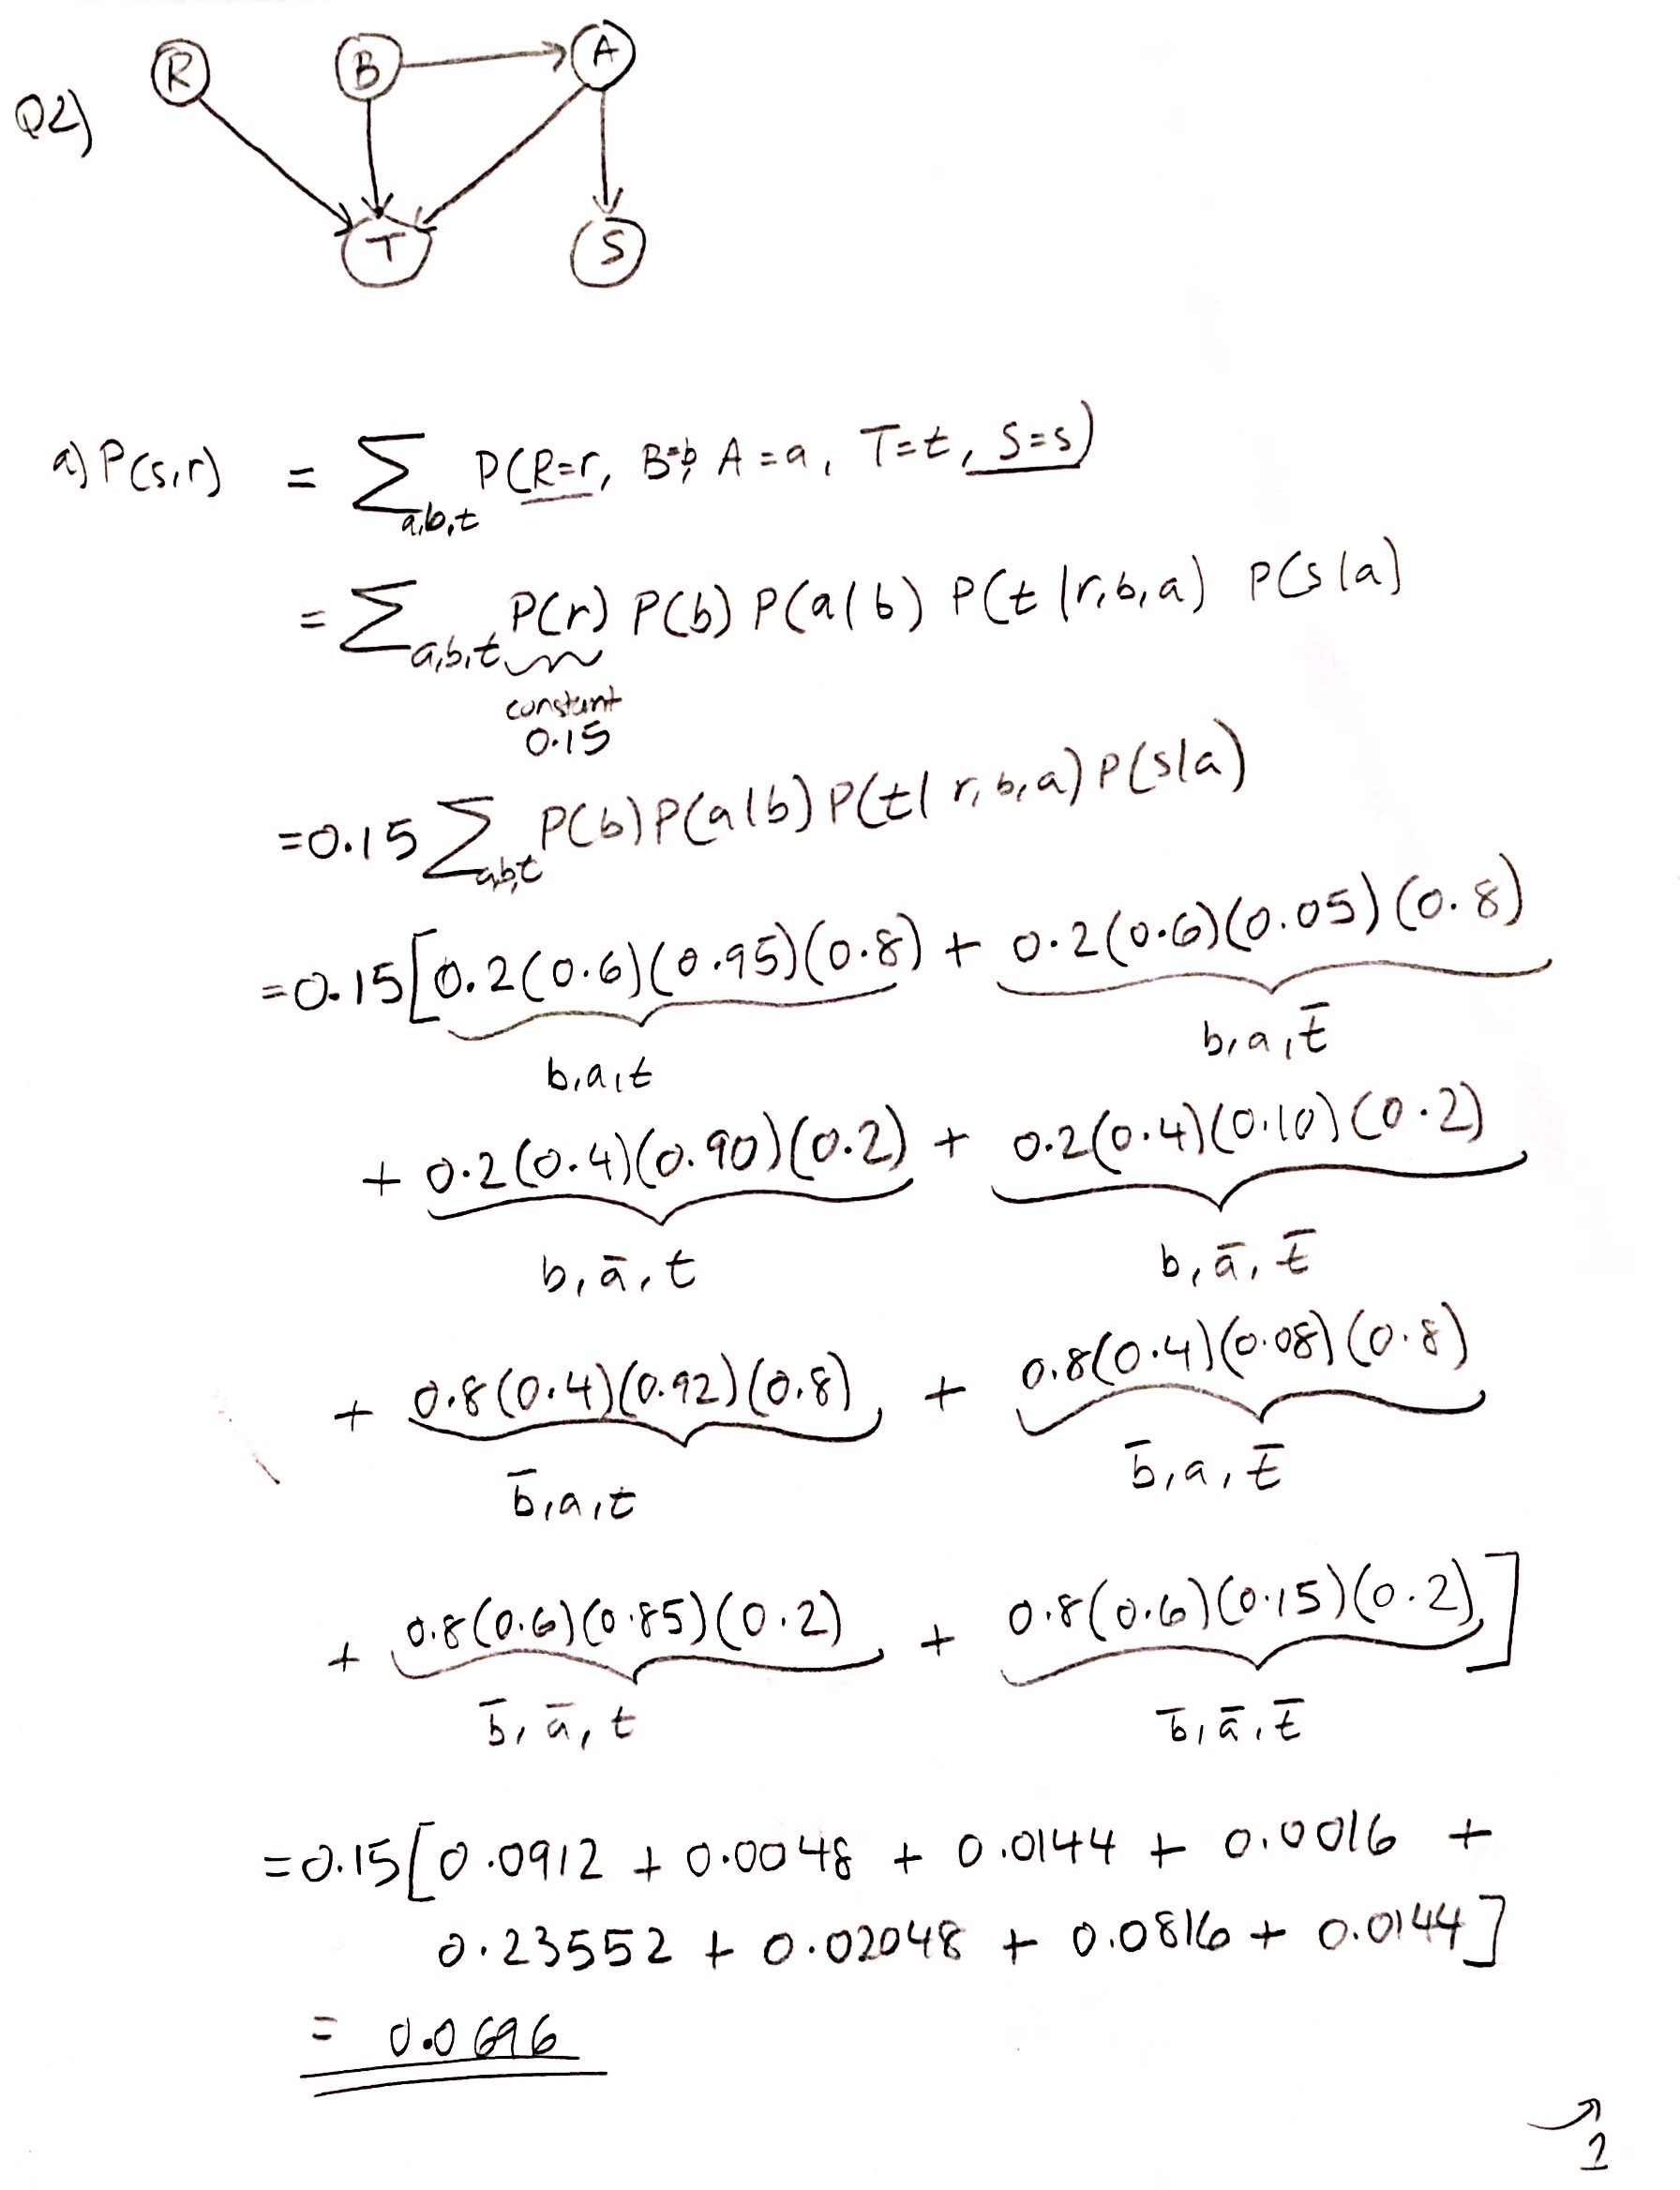 R B A
Q2)
T S
a) P(s,r) = ∑a,b,t P(R=r, B=b, A=a, T=t, S=s)
= ∑a,b,t P(r) P(b) P(a|b) P(t|r,b,a) P(s|a)
constant
0.15
=0.15 ∑a,b,t P(b) P(a|b) P(t|r,b,a) P(s|a)
=0.15[0.2(0.6)(0.95)(0.8) + 0.2(0.6)(0.05)(0.8)
b,a,t b,a,t̄
+ 0.2(0.4)(0.90)(0.2) + 0.2(0.4)(0.10)(0.2)
b,ā,t b,ā,t̄
+ 0.8(0.4)(0.92)(0.8) + 0.8(0.4)(0.08)(0.8)
b̄,a,t b̄,a,t̄
+ 0.8(0.6)(0.85)(0.2) + 0.8(0.6)(0.15)(0.2)]
b̄,ā,t b̄,ā,t̄
=0.15[0.0912 + 0.0048 + 0.0144 + 0.0016 +
0.23552 + 0.02048 + 0.0816 + 0.0144]
= 0.0696
1